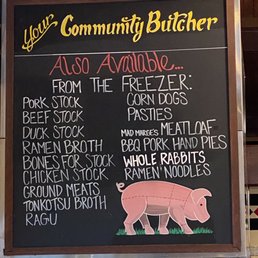 Your Community Butcher
Also Available...
From the Freezer:
Pork Stock
Beef Stock
Duck Stock
Ramen Broth
Bones for Stock
Chicken Stock
Ground Meats
Tonkotsu Broth
Ragu
Corn Dogs
Pasties
Mad Marge's Meatloaf
BBQ Pork Hand Pies
Whole Rabbits
Ramen Noodles